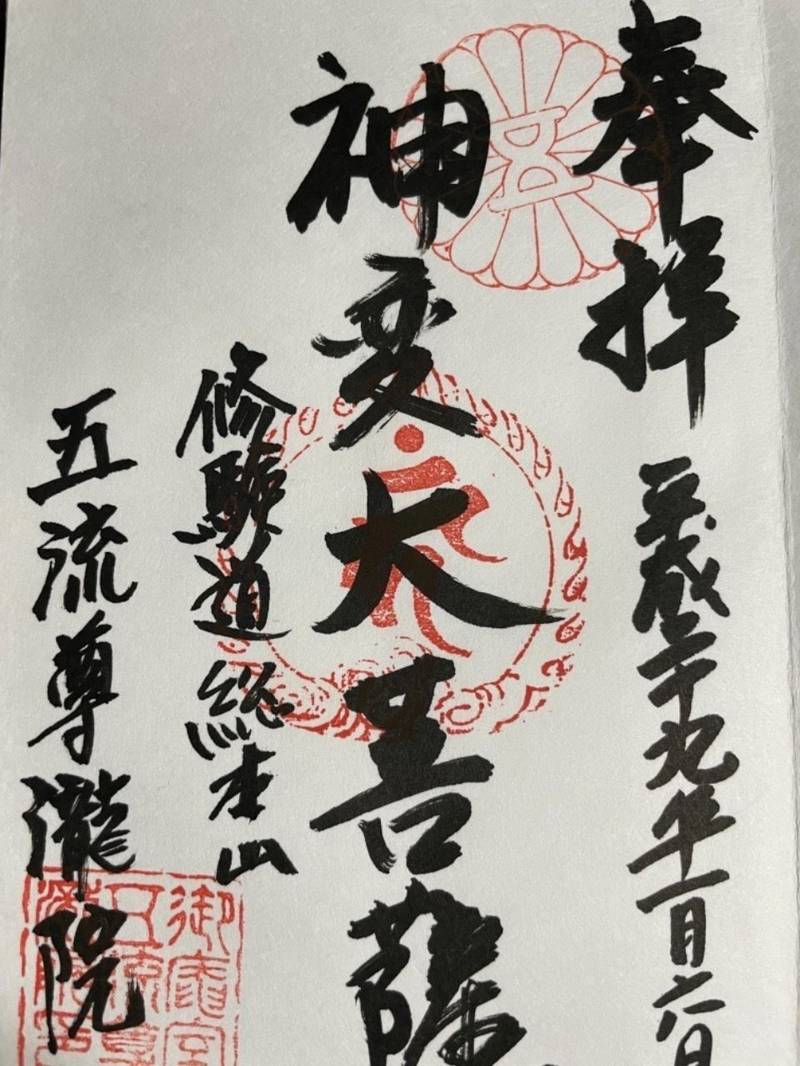 奉拝
平成二十九年一月六日
神変大菩薩
修験道総本山
五流尊瀧院